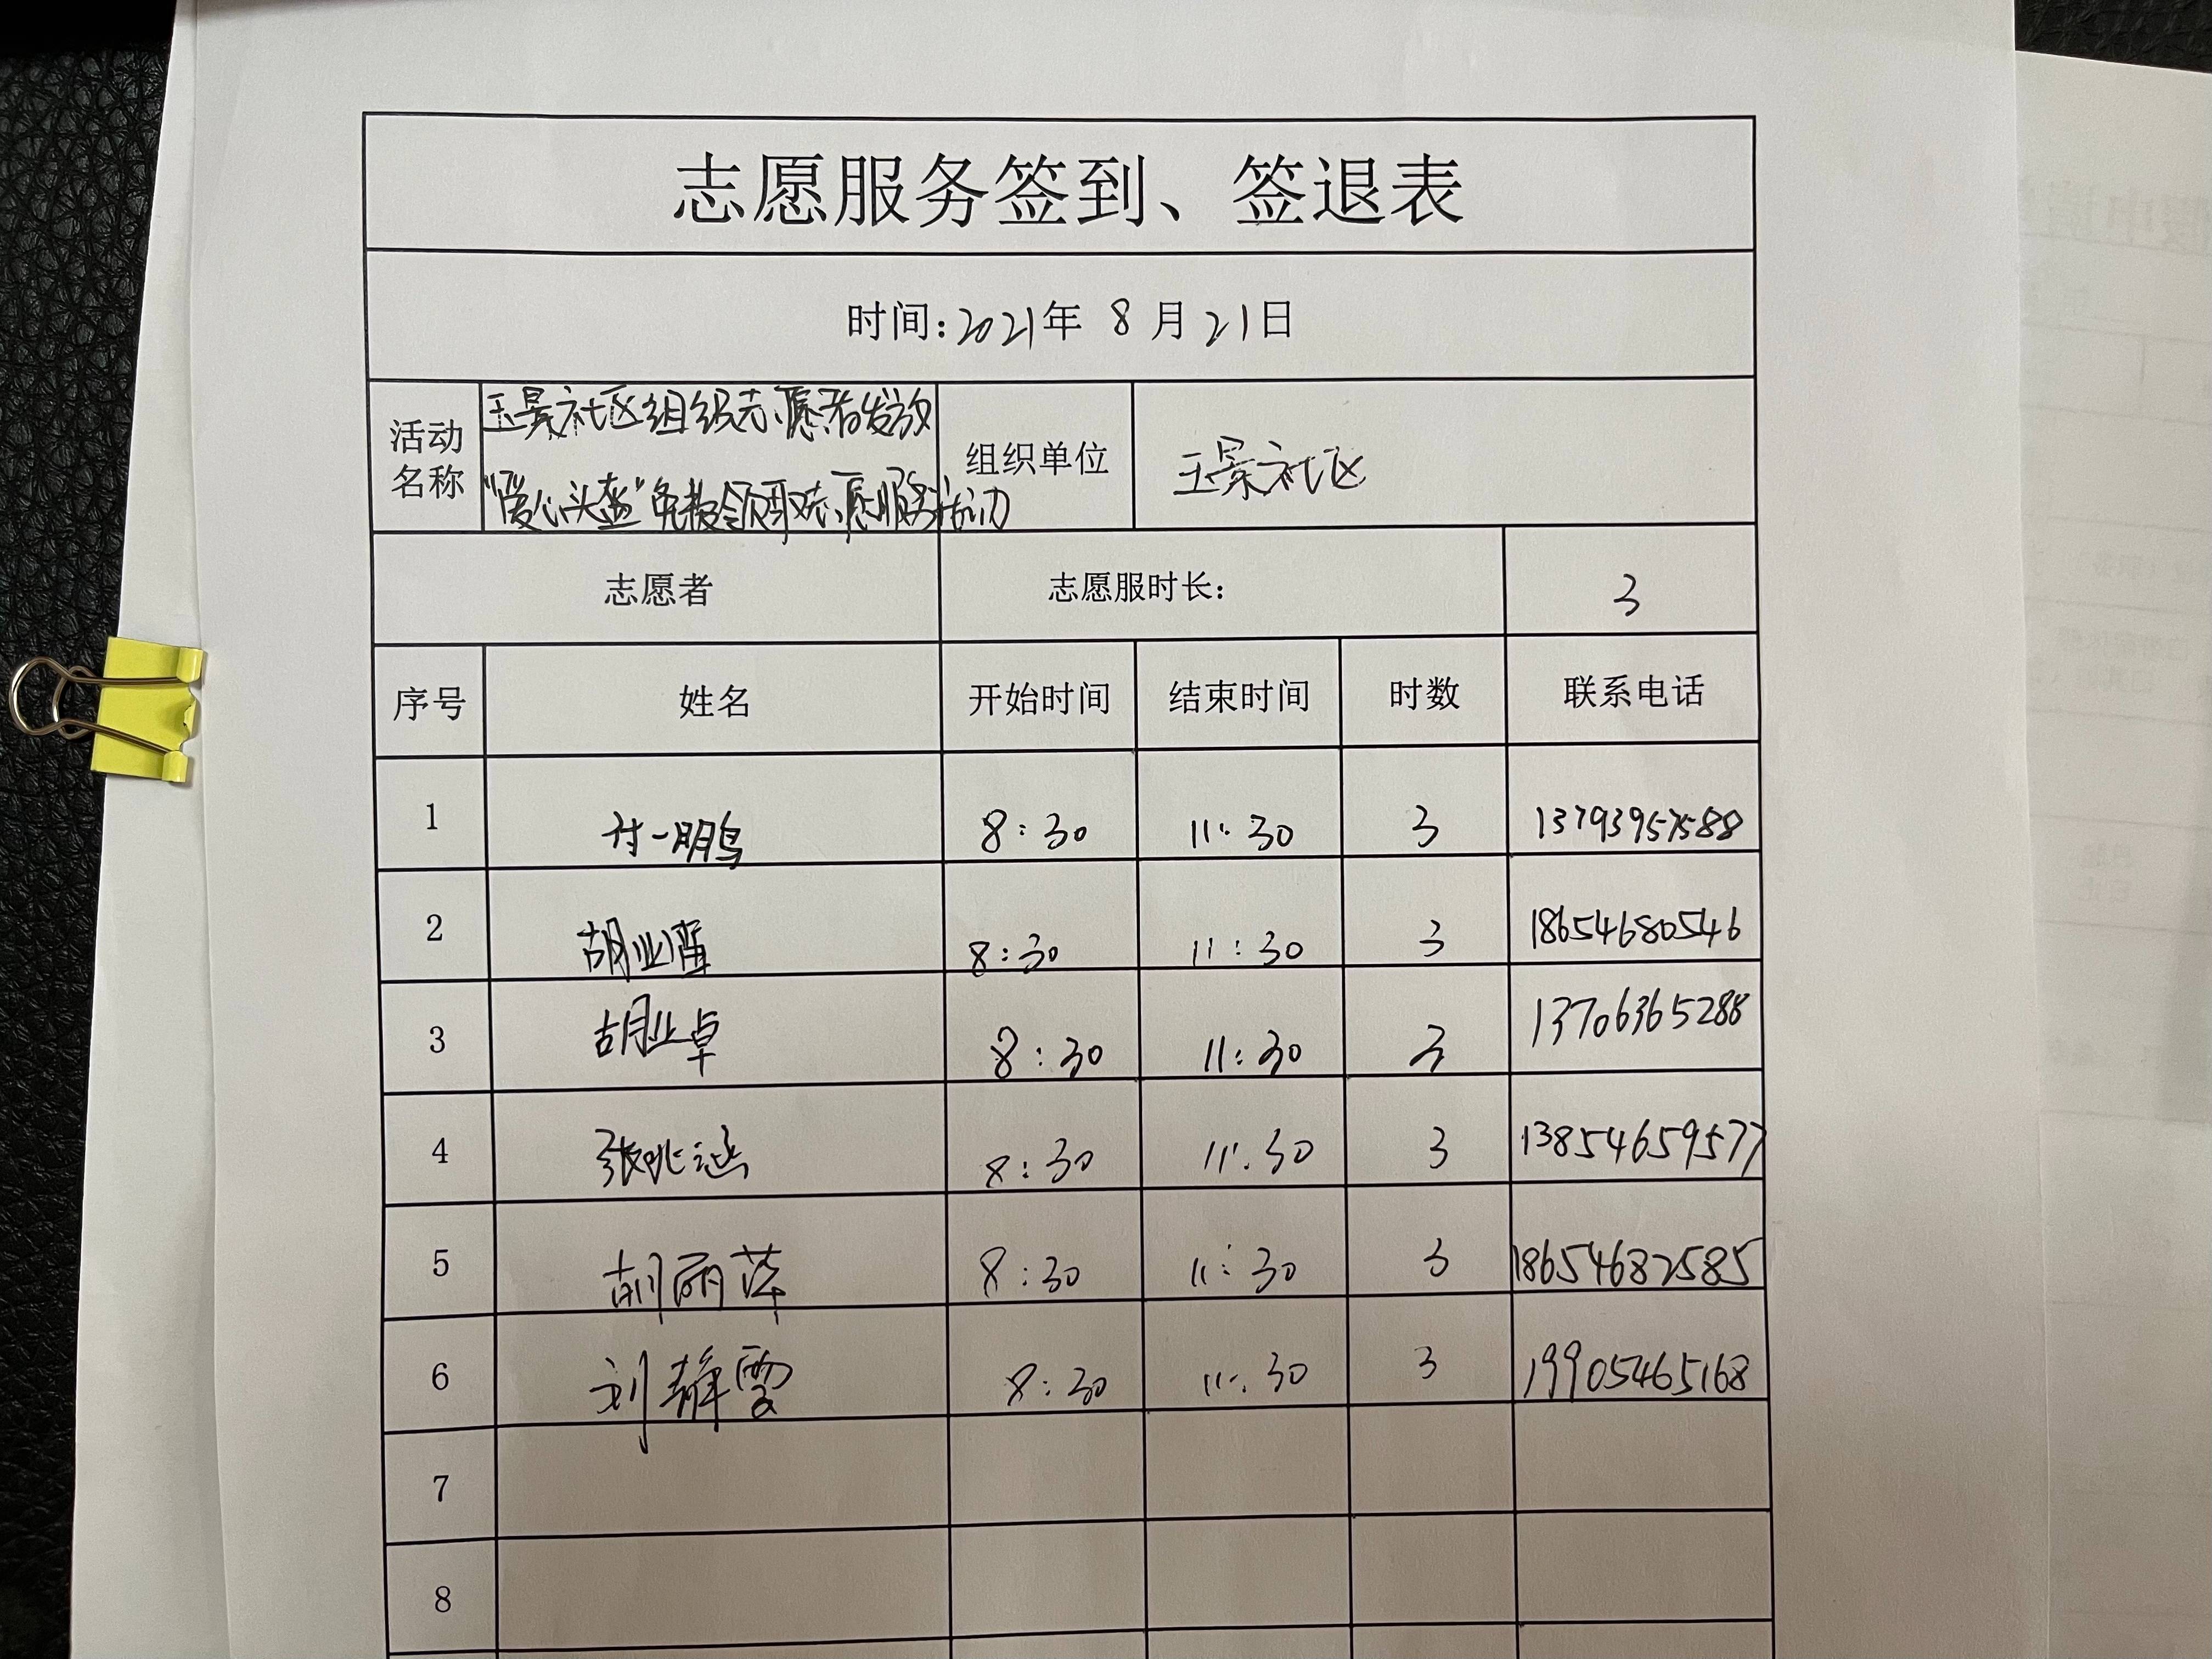 志愿服务签到、签退表
时间:2021年 8 月 21日
活动名称 玉景社区组织志愿者发放"爱心头盔"免费领取志愿服务活动 组织单位 玉景社区
志愿者 志愿服时长: 3
序号 姓名 开始时间 结束时间 时数 联系电话
1 付一鹏 8:30 11:30 3 13793957588
2 胡业 8:30 11:30 3 18654680546
3 胡业卓 8:30 11:30 3 13706365288
4 张兆涵 8:30 11:30 3 13854659577
5 胡丽萍 8:30 11:30 3 18654682585
6 刘静雯 8:30 11:30 3 19905465168
7
8